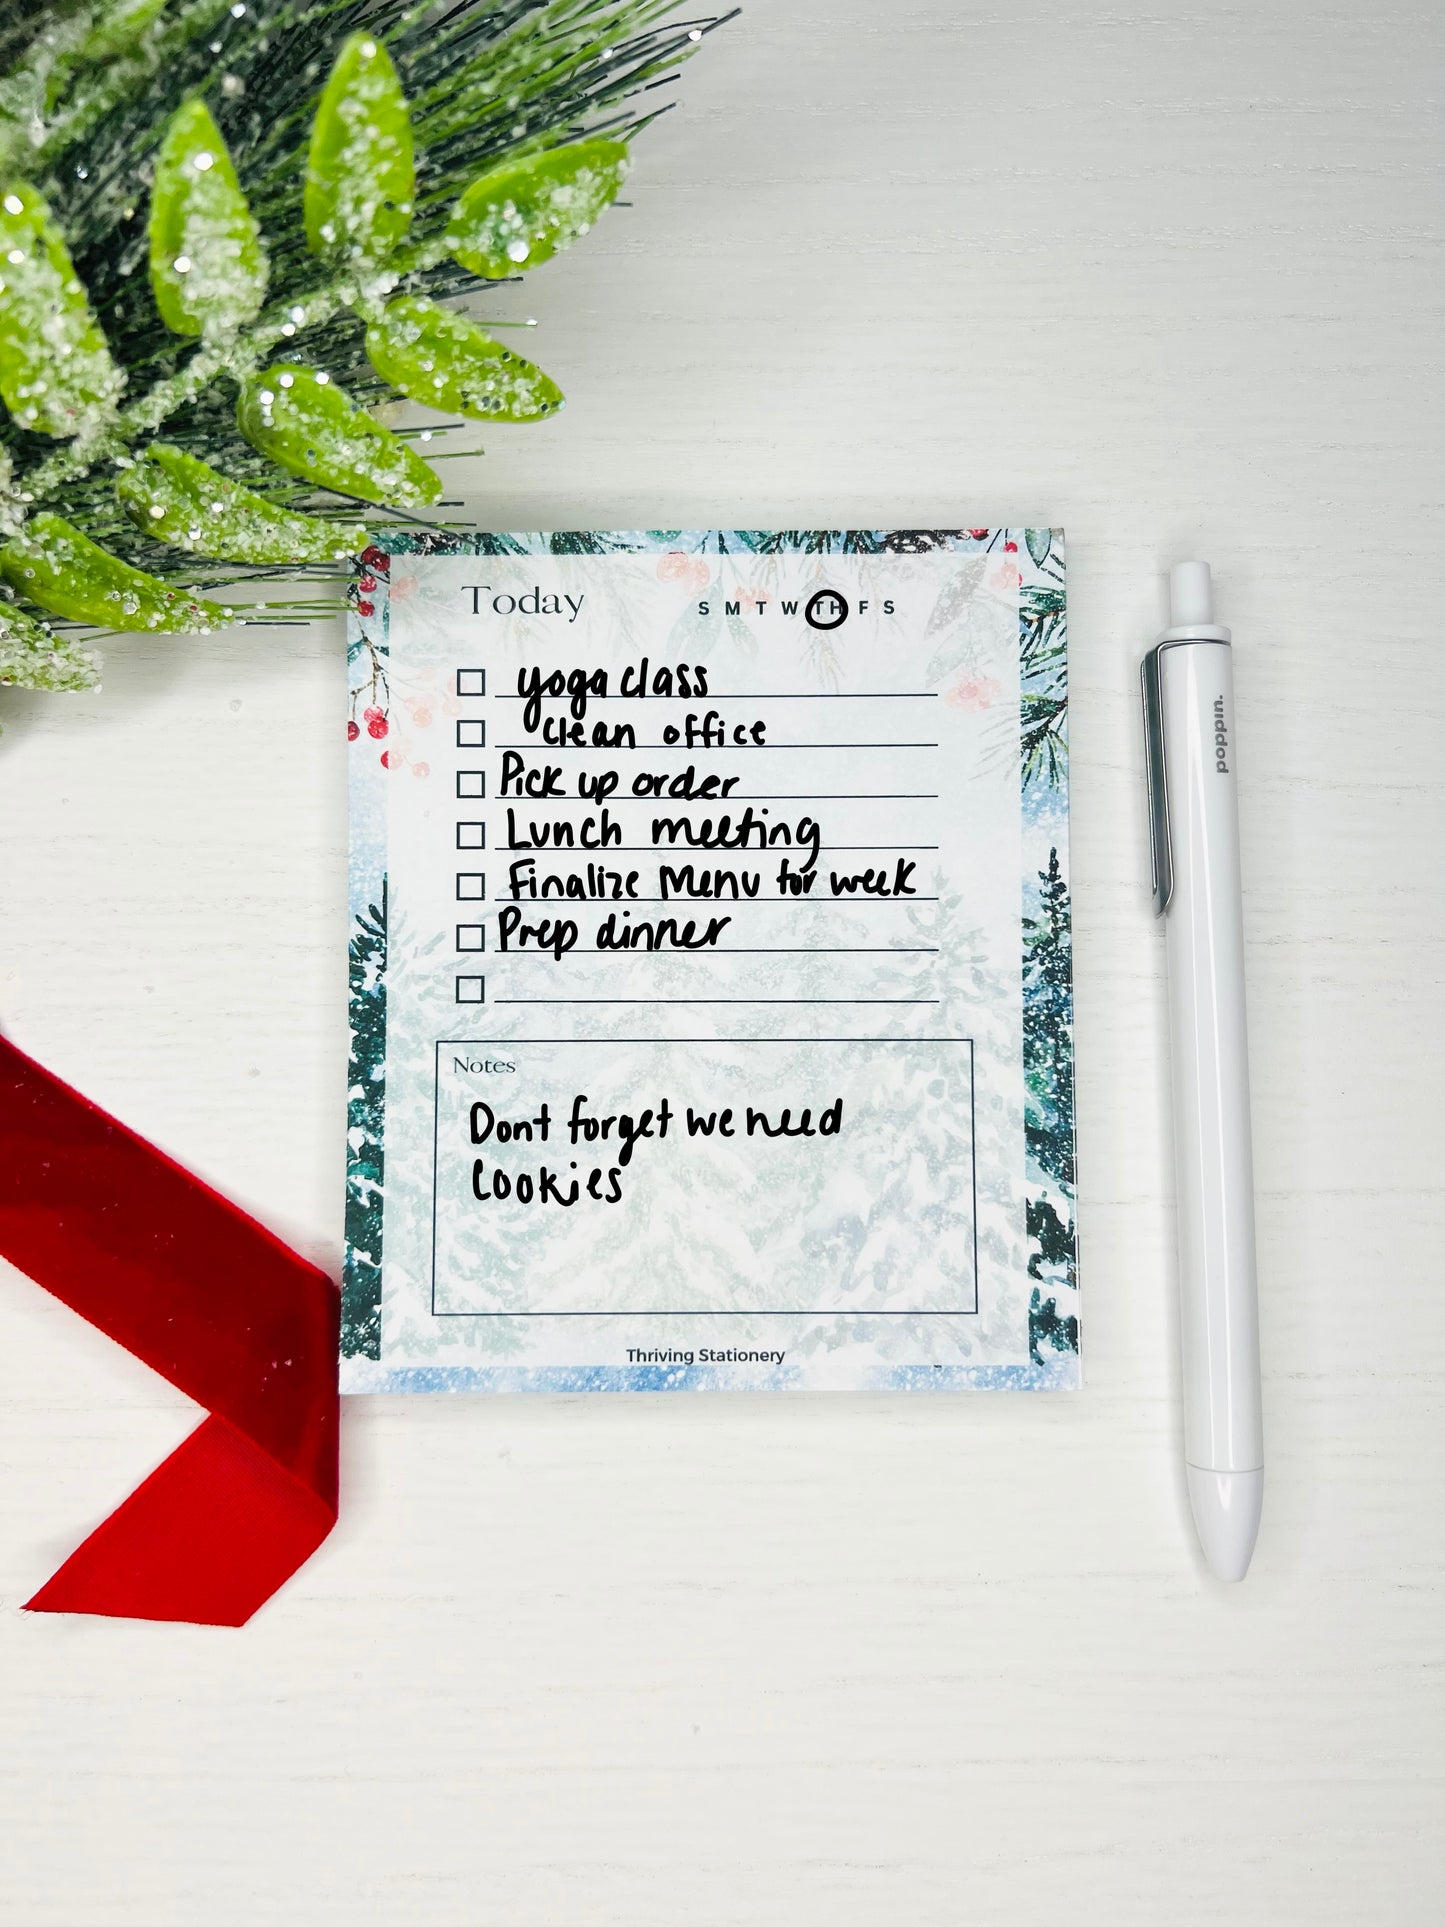 Today
S M T W TH F S
yoga class
clean office
Pick up order
Lunch meeting
Finalize Menu for week
Prep dinner
Notes
Dont forget we need
Cookies
Thriving Stationery
poppin.